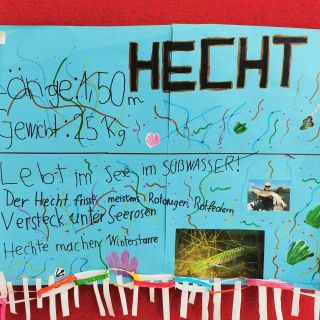 HECHT
Länge: 1,50 m
Gewicht: 25 Kg
Lebt im See im SÜßWASSER!
Der Hecht frisst meistens Rotaugen, Rotfedern
Versteck unter Seerosen
Hechte machen Winterstarre